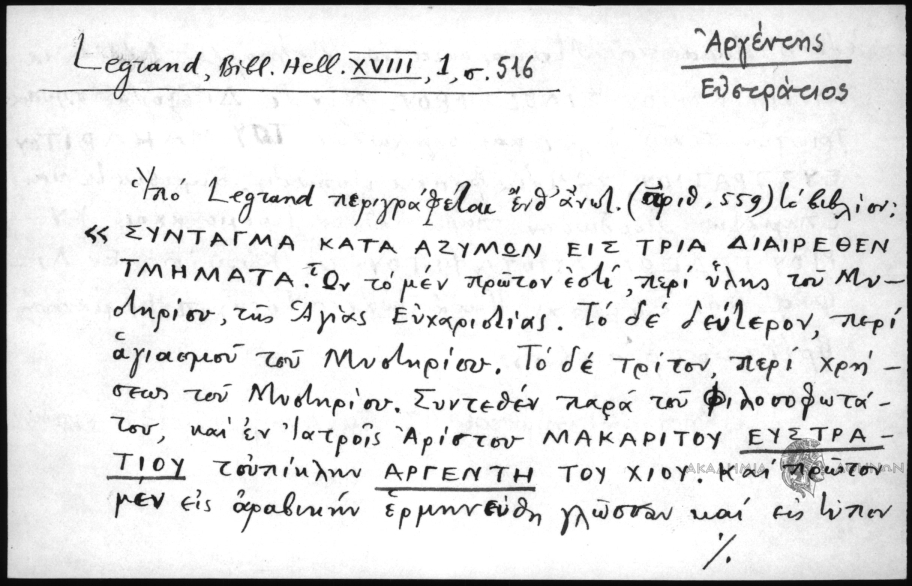 Legrand, Bibl. Hell. XVIII, 1, σ. 516
Ἀργέντης
Εὐστράτιος
Ὑπό Legrand περιγράφεται ἐνθ' ἀνωτ. (ἀριθ. 559) τό βιβλίον:
« ΣΥΝΤΑΓΜΑ ΚΑΤΑ ΑΖΥΜΩΝ ΕΙΣ ΤΡΙΑ ΔΙΑΙΡΕΘΕΝ
ΤΜΗΜΑΤΑ. Ὧν τό μέν πρῶτον ἐστί, περί ὕλης τοῦ Μυ-
στηρίου, τῆς Ἁγίας Εὐχαριστίας. Τό δέ δεύτερον, περί
ἁγιασμοῦ τοῦ Μυστηρίου. Τό δέ τρίτον, περί χρή-
σεως τοῦ Μυστηρίου. Συντεθέν παρά τοῦ Φιλοσοφωτά-
του, καί ἐν Ἰατροῖς Ἀρίστου ΜΑΚΑΡΙΤΟΥ ΕΥΣΤΡΑ-
ΤΙΟΥ τοὐπίκλην ΑΡΓΕΝΤΗ ΤΟΥ ΧΙΟΥ. Καί πρῶτον
μέν εἰς ἀραβικήν ἑρμηνεύθη γλῶσσαν καί εἰς τύπον
./.
ΑΚΑΔΗΜΙΑ ΑΘΗΝΩΝ